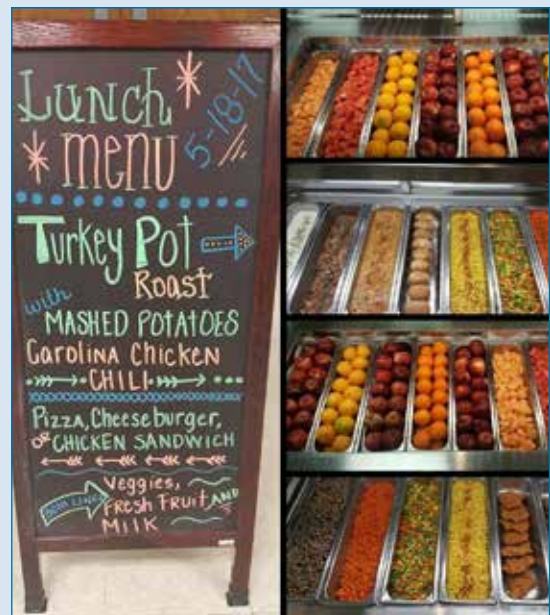 LUNCH
MENU
5-18-17
TURKEY POT
ROAST
with
MASHED POTATOES
Carolina Chicken
CHILI
Pizza, Cheeseburger,
OR CHICKEN SANDWICH
Both Lines
Veggies,
FRESH FRUIT AND
MILK